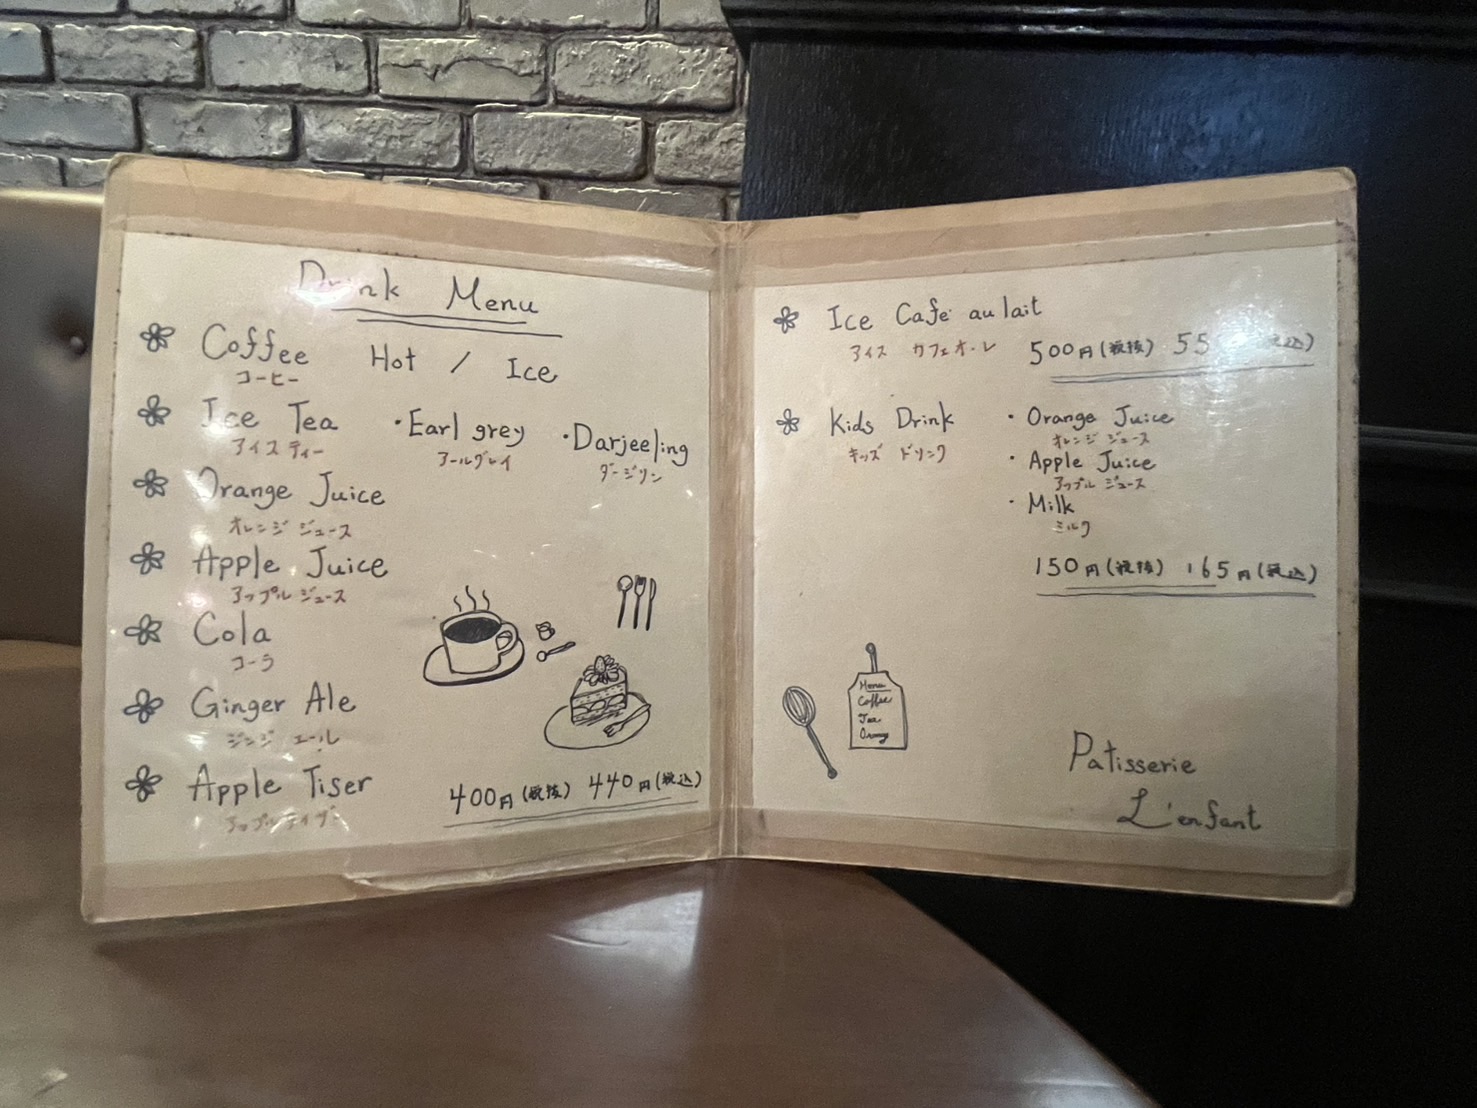 Drink Menu
Coffee Hot / Ice
コーヒー
Ice Tea ・Earl grey ・Darjeeling
アイスティー アールグレイ ダージリン
Orange Juice
オレンジ ジュース
Apple Juice
アップル ジュース
Cola
コーラ
Ginger Ale
ジンジャエール
Apple Tiser
アップルタイザー
400円(税抜) 440円(税込)
Ice Cafe au lait
アイス カフェオーレ
500円(税抜) 55 税込)
Kids Drink ・Orange Juice
キッズ ドリンク オレンジ ジュース
・Apple Juice
アップル ジュース
・Milk
ミルク
150円(税抜) 165円(税込)
Menu
Coffee
Tea
Orange
Patisserie
L'enfant